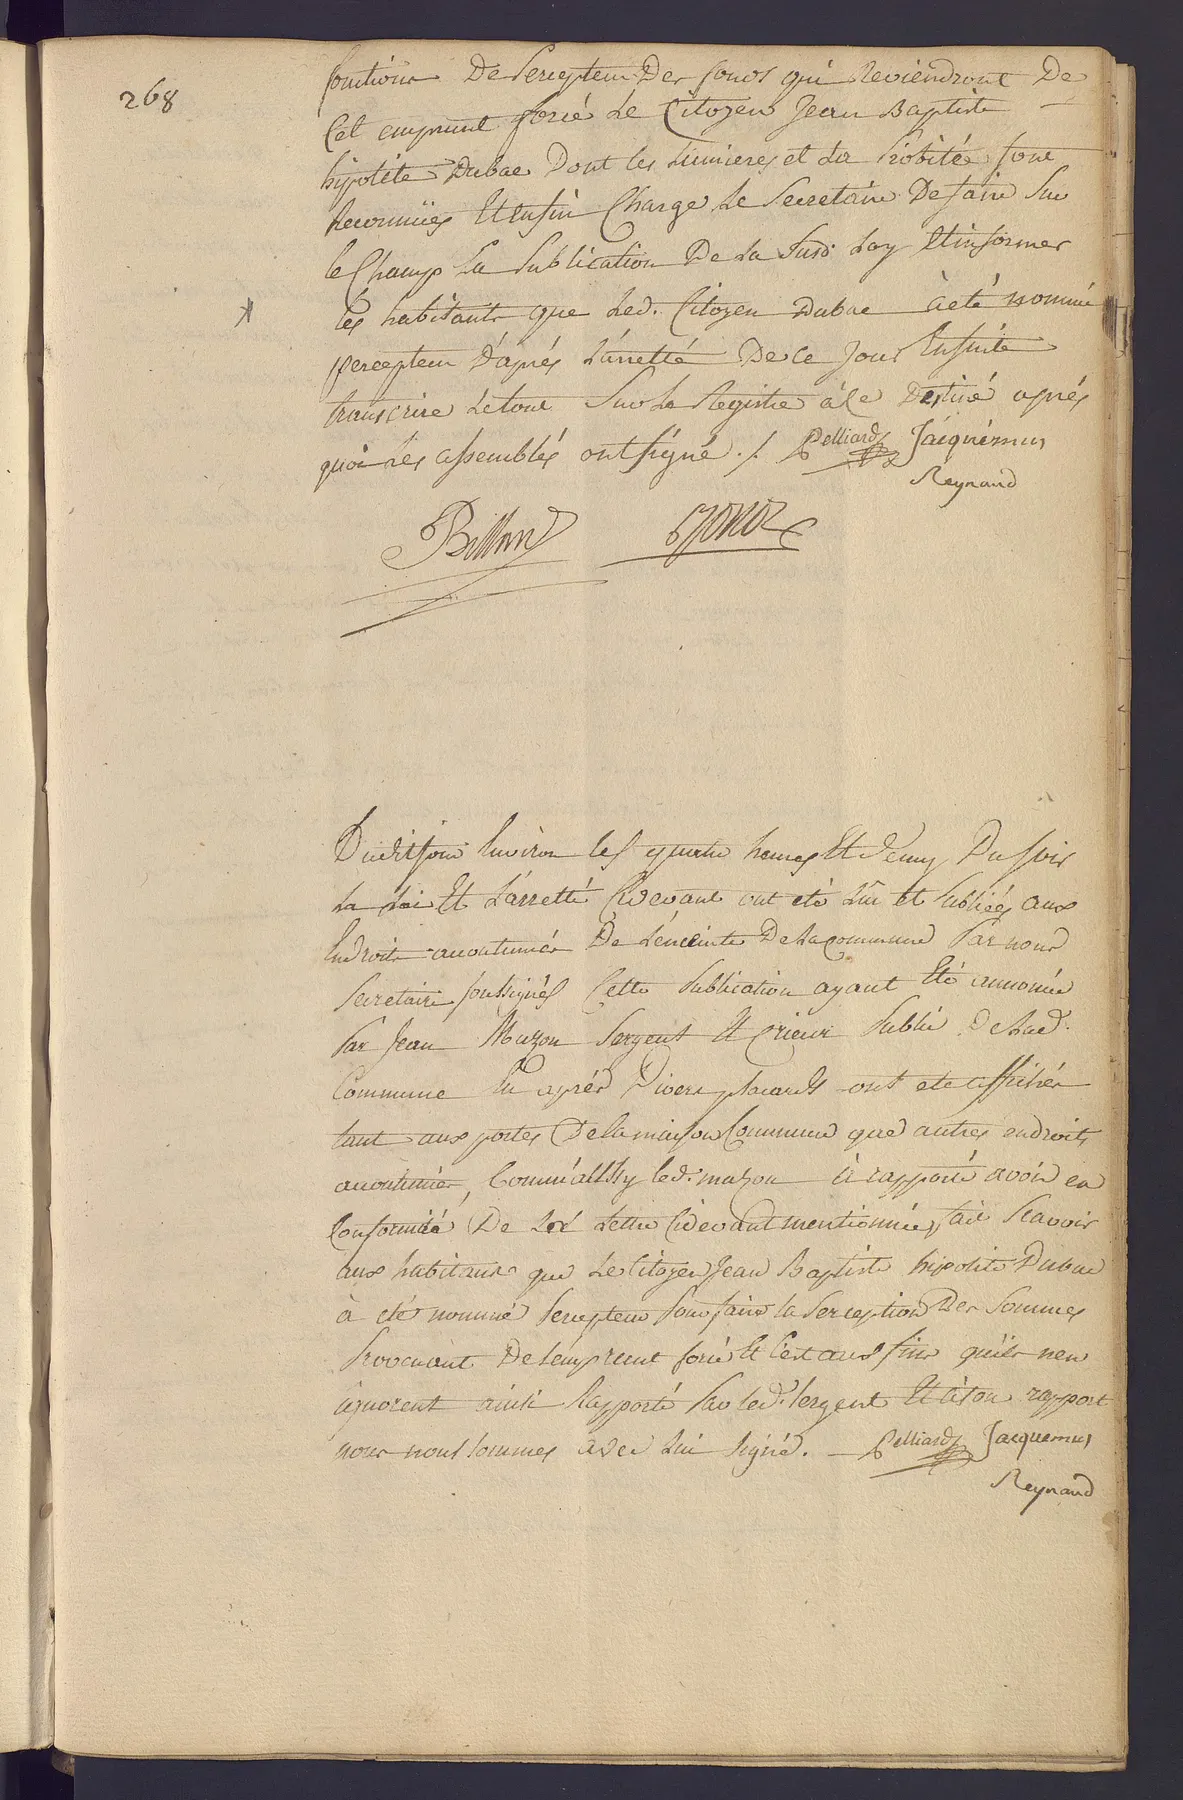 268
fonctions De Percepteur Des fonds qui Reviendront De
Cet emprunt forcé Le Citoyen Jean Baptiste
hipolite Dubac Dont les Lumieres et La Probité sont
Reconnües Et enfin Charge Le Secretaire De faire Sur
le Champ La Publication De La Susd. Loy Et informer
les habitants que Led. Citoyen Dubac à eté nommé
percepteur D'aprés L'arretté De Ce Jour Ensuite
transcrire Le tout Sur Le Registre à Ce Destiné aprés
quoi Les assemblés ont signé ./. Pelliard Jacquemus
Reynaud
Billon
Du dit jour Environ les quatre heures Et demy Du soir
La Loi Et L'arretté Cidevant ont eté Lûs et Publiés aux
Endroits accoutumés De L'enceinte De La commune Par nous
Secretaire soussignés Cette Publication ayant Eté annoncée
Par Jean Mazon Sergent Et Crieur Public De Lad.
Commune En aprés Divers placards ont eté affichés
tant aux portes De la maison Commune que autres endroits
accoutumés, Comme aussy led. mazon à rapporté avoir en
Conformité De La Lettre Cidevant mentionnée, fait Scavoir
aux habitans que Le Citoyen Jean Baptiste hipolite Dubac
à eté nommé Percepteur Pour faire la Perception Des Sommes
Provenant De L'emprunt forcé Et C'est aux fins qu'ils n'en
ignorent ainsi Rapporté Par led. Sergent Et à son rapport
nous nous sommes avec Lui signé. Pelliard Jacquemus
Reynaud